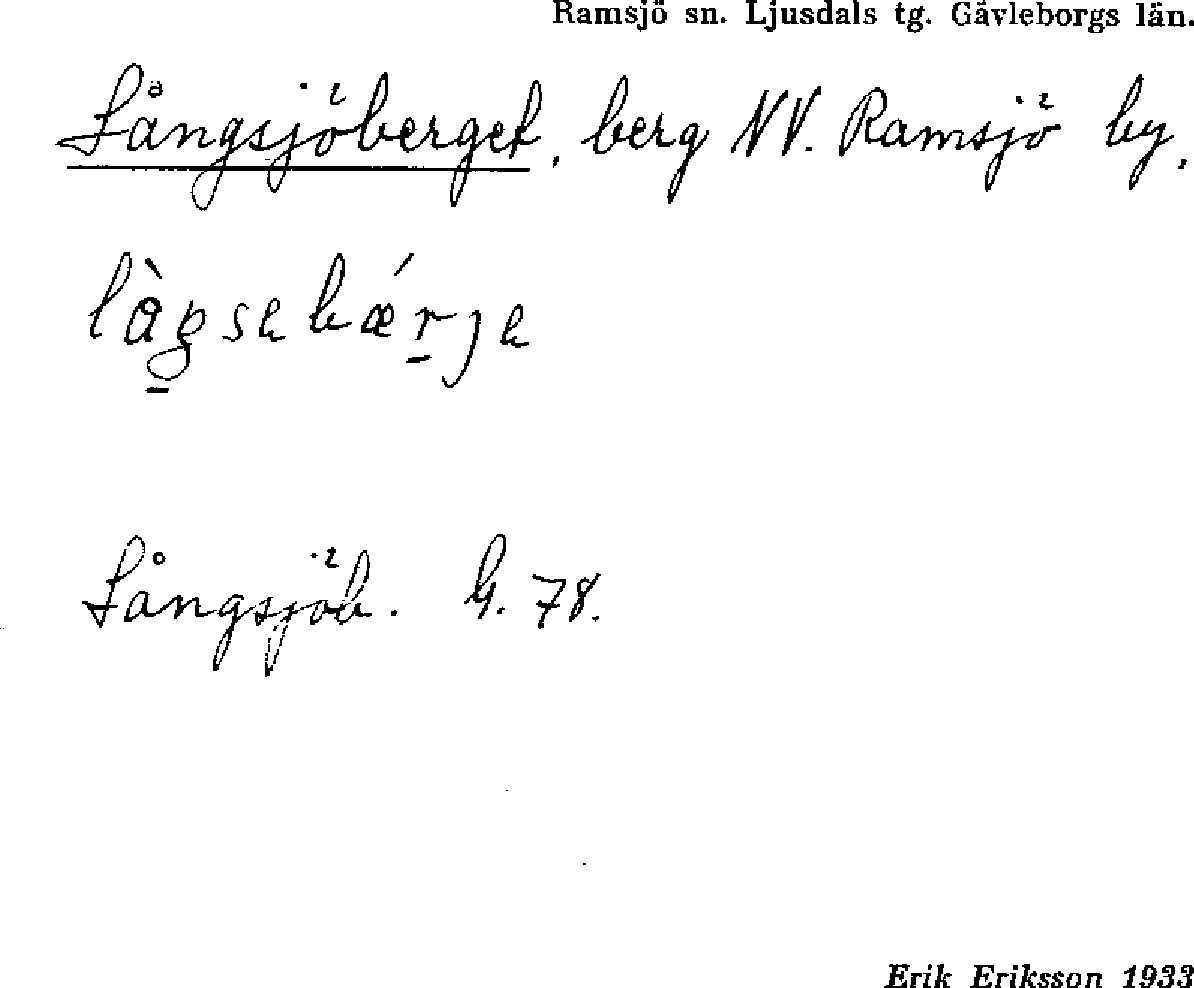 Ramsjö sn. Ljusdals tg. Gävleborgs län.
Långsjöberget, berg NV. Ramsjö by.
Långsjöb. G. 78.
Erik Eriksson 1933